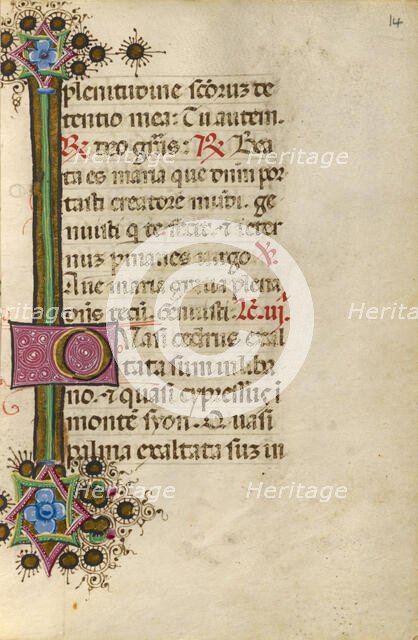 14
plenitudine scoruz de
tentio mea: Tu autem.
R Deo gras: R Bea
ta es maria que dnm por
tasti creatore mudi. ge
nuisti q te fecit et in eter
nuz pmanes virgo. V
Ave maria gratia plena
dns tecu. Genuisti. Lc iij
Quasi cedrus exal
tata sum in liba
no. et quasi cypressus i
monte syon. Quasi
palma exaltata suz in
Heritage
Heritage
Heritage
Heritage
Heritage
Heritage
Heritage